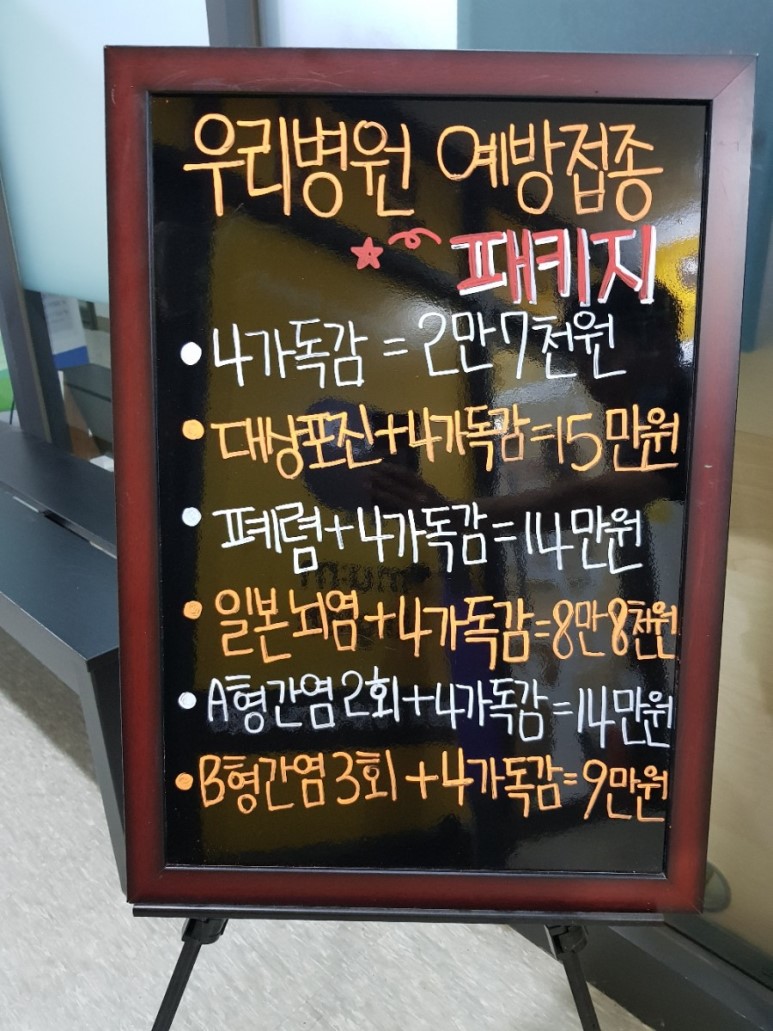 우리병원 예방접종
패키지
• 4가독감 = 2만7천원
• 대상포진+4가독감=15만원
• 폐렴+4가독감=14만원
• 일본뇌염+4가독감=8만8천원
• A형간염2회+4가독감=14만원
• B형간염3회+4가독감=9만원